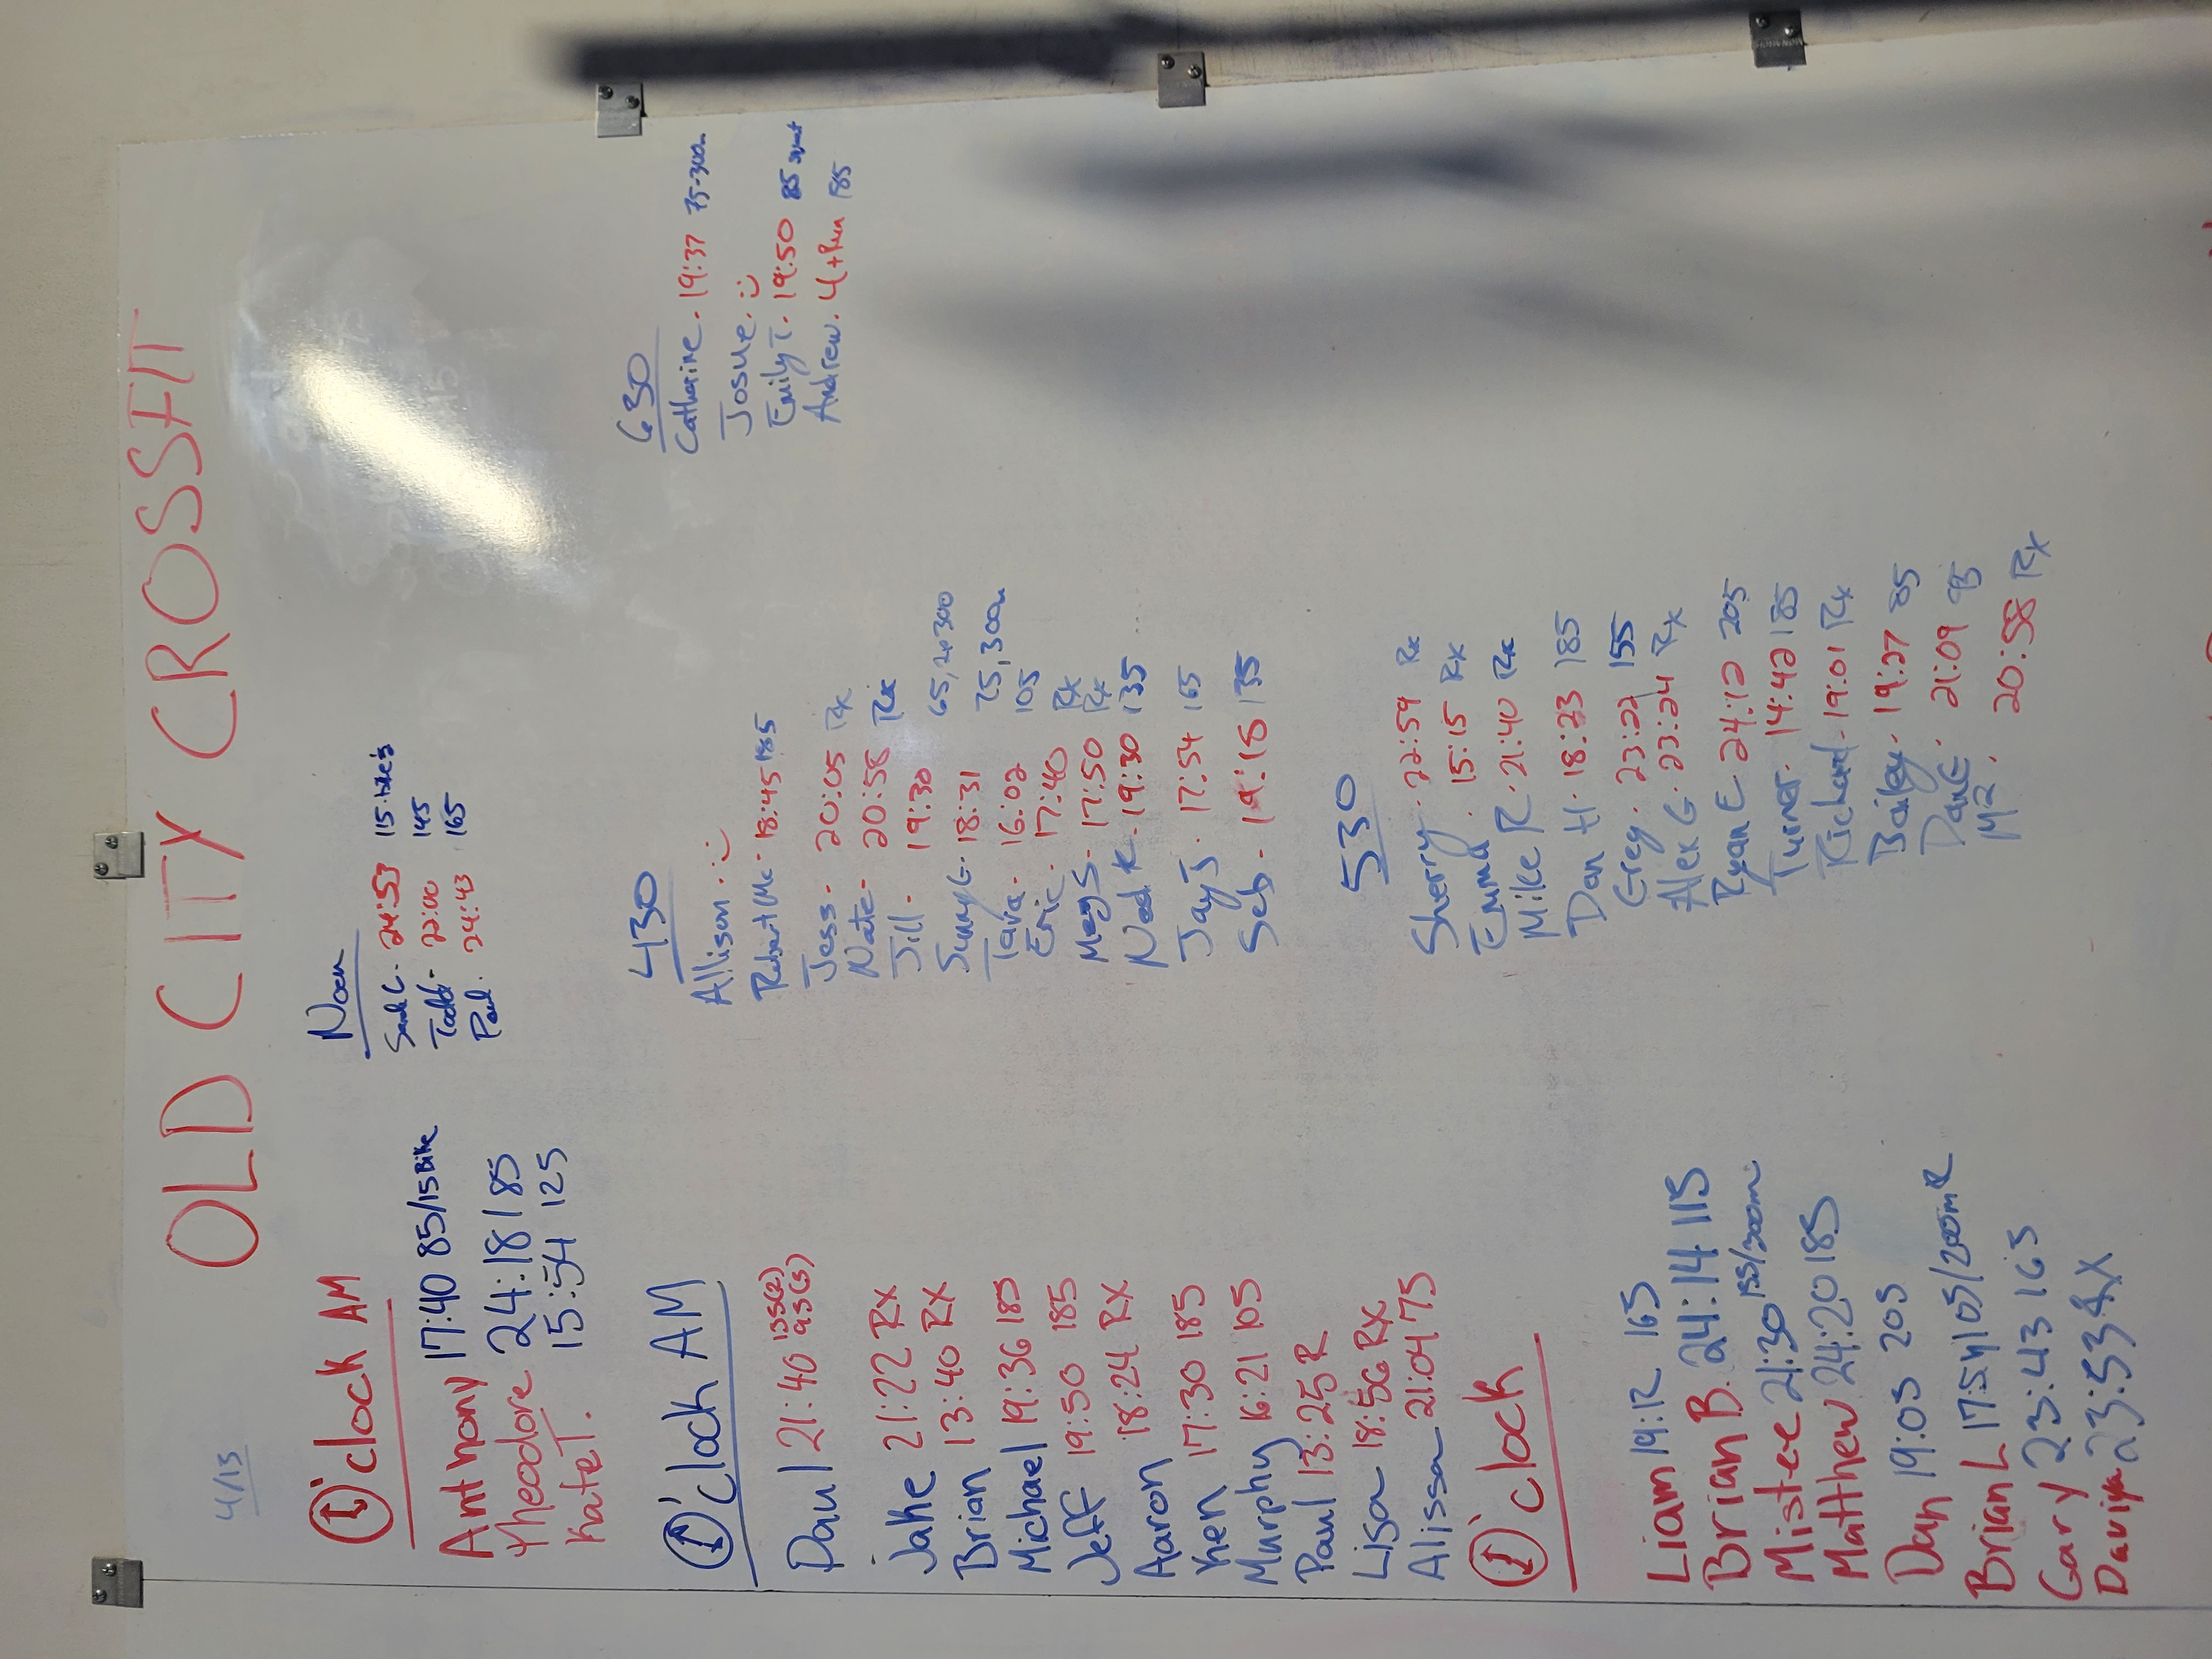 OLD CITY CROSSFIT
4/13
'clock AM
Anthony 17:40 85/15 Bike
Theodore 24:18 185
Kate T. 15:54 125
'clock AM
Paul 21:40 135(2) 95(3)
Jake 21:22 RX
Brian 13:40 RX
Michael 19:36 185
Jeff 19:50 185
Aaron 18:24 RX
Ken 17:30 185
Murphy 16:21 105
Paul 13:25 R
Lisa 18:56 RX
Alissa 21:04 75
'clock
Liam 19:12 165
Brian B. 24:14 115
Mistee 21:30 155/300m
Matthew 24:20 185
Dan 19:05 205
Brian L 17:54 105/200mR
Gary 23:43 165
23:53 RX
Noon
Sarah C. 24:53 115
Todd 22:00 145
Paul. 24:43 165
430
Allison. :)
Robert Mc - 18:45 185
Jess - 20:05 Rx
Nate - 20:58 Rx
Jill - 19:30
Sunny G - 18:31 65, 300
Tara - 16:02 75, 300m
Eric - 17:40 105
Meg S - 17:50 Rx
Rx
Ned K - 19:30 135
Jay J. 17:54 165
Seb - 19:18 135
530
Sherry - 22:59 Rx
Emma. 15:15 Rx
Mike R. 21:40 Rx
Dan H. 18:23 185
Greg. 23:22 155
Alex G. 23:24 Rx
Ryan E 24:12 205
Turner. 14:42 185
Richard - 19:01 Rx
Bailey - 19:27 85
Dan E. 21:09 95
M2. 20:58 Rx
630
Catharine - 19:37 75-300m
Josue. :)
Emily T. 19:50 85
Andrew. 4+Run 185